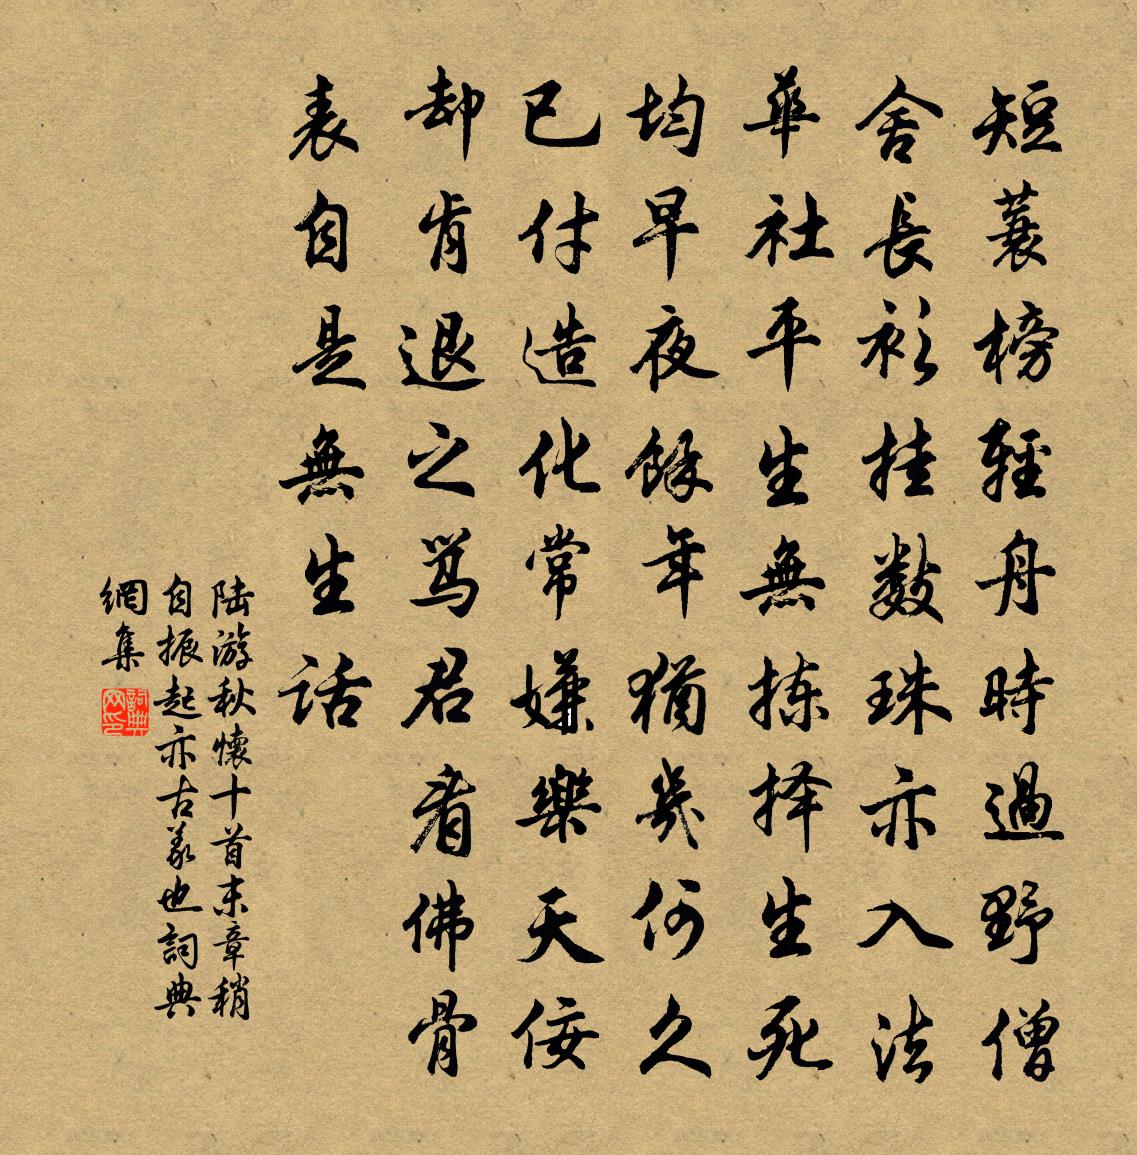 短蓑榜輕舟時過野僧
舍長衫挂數珠亦入法
華社平生無拣择生死
均早夜餘年猶幾何久
已付造化常嫌樂天佞
却肯退之骂君看佛骨
表自是無生话
陆游秋懷十首末章稍
自振起亦古義也詞典
網集
詞典
网印